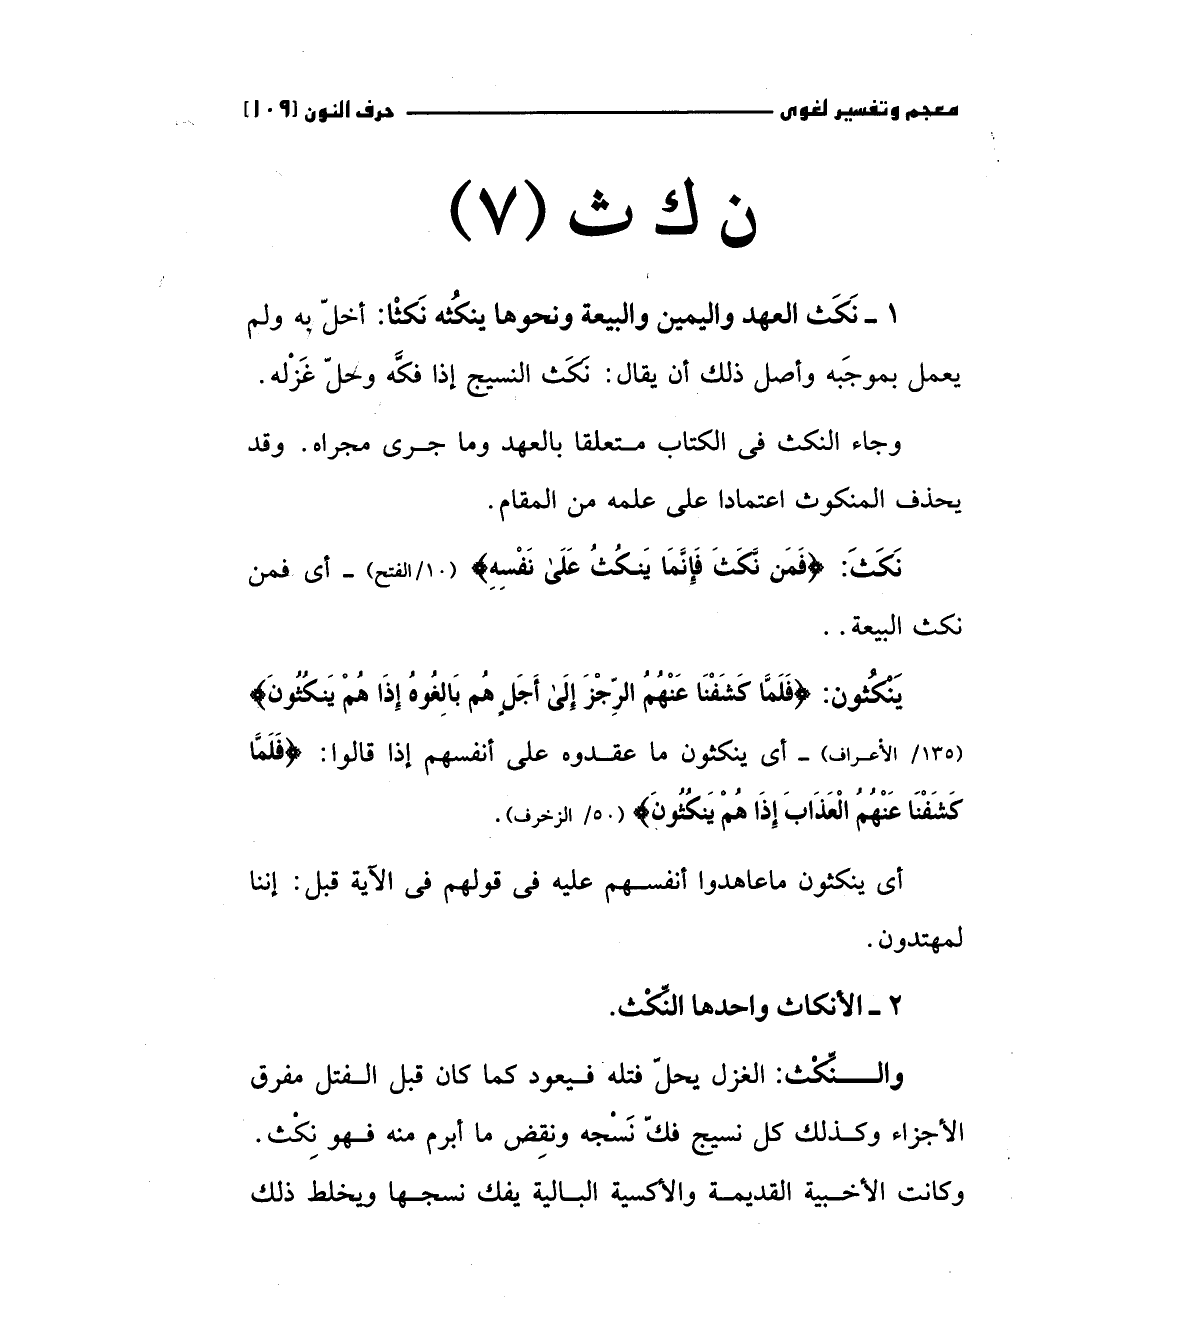 معجم وتفسير لغوى حرف النون [١٠٩]
ن ك ث (٧)
١ ـ نَكَث العهد واليمين والبيعة ونحوها ينكُثه نَكثْا: أخلّ بِه ولم
يعمل بموجَبه وأصل ذلك أن يقال: نَكَث النسيج إذا فكَّه وحلّ غَزْله.
وجاء النكث فى الكتاب متعلقا بالعهد وما جرى مجراه. وقد
يحذف المنكوث اعتمادا على علمه من المقام.
نَكَثَ: ﴿فَمَن نَّكَثَ فَإِنَّمَا يَنكُثُ عَلَىٰ نَفْسِهِ﴾ (١٠/الفتح) ـ أى فمن
نكث البيعة..
يَنْكُثون: ﴿فَلَمَّا كَشَفْنَا عَنْهُمُ الرِّجْزَ إِلَىٰ أَجَلٍ هُم بَالِغُوهُ إِذَا هُمْ يَنكُثُونَ﴾
(١٣٥/ الأعراف) ـ أى ينكثون ما عقدوه على أنفسهم إذا قالوا: ﴿فَلَمَّا
كَشَفْنَا عَنْهُمُ الْعَذَابَ إِذَا هُمْ يَنكُثُونَ﴾ (٥٠/ الزخرف).
أى ينكثون ماعاهدوا أنفسهم عليه فى قولهم فى الآية قبل: إننا
لمهتدون.
٢ ـ الأنكاث واحدها النِّكْث.
والنِّكْث: الغزل يحلّ فتله فيعود كما كان قبل الفتل مفرق
الأجزاء وكذلك كل نسيج فكّ نَسْجه ونقِض ما أبرم منه فهو نِكْث.
وكانت الأخبية القديمة والأكسية البالية يفك نسجها ويخلط ذلك